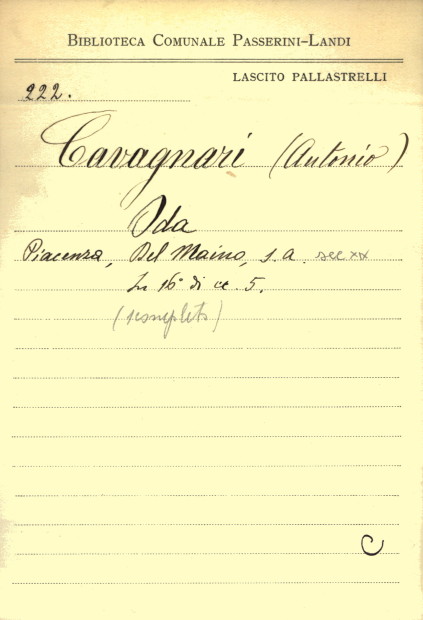 BIBLIOTECA COMUNALE PASSERINI-LANDI
LASCITO PALLASTRELLI
222.
Cavagnari (Antonio)
Oda
Piacenza, Del Maino, s. a. sec XX
In 16° di cc. 5.
C